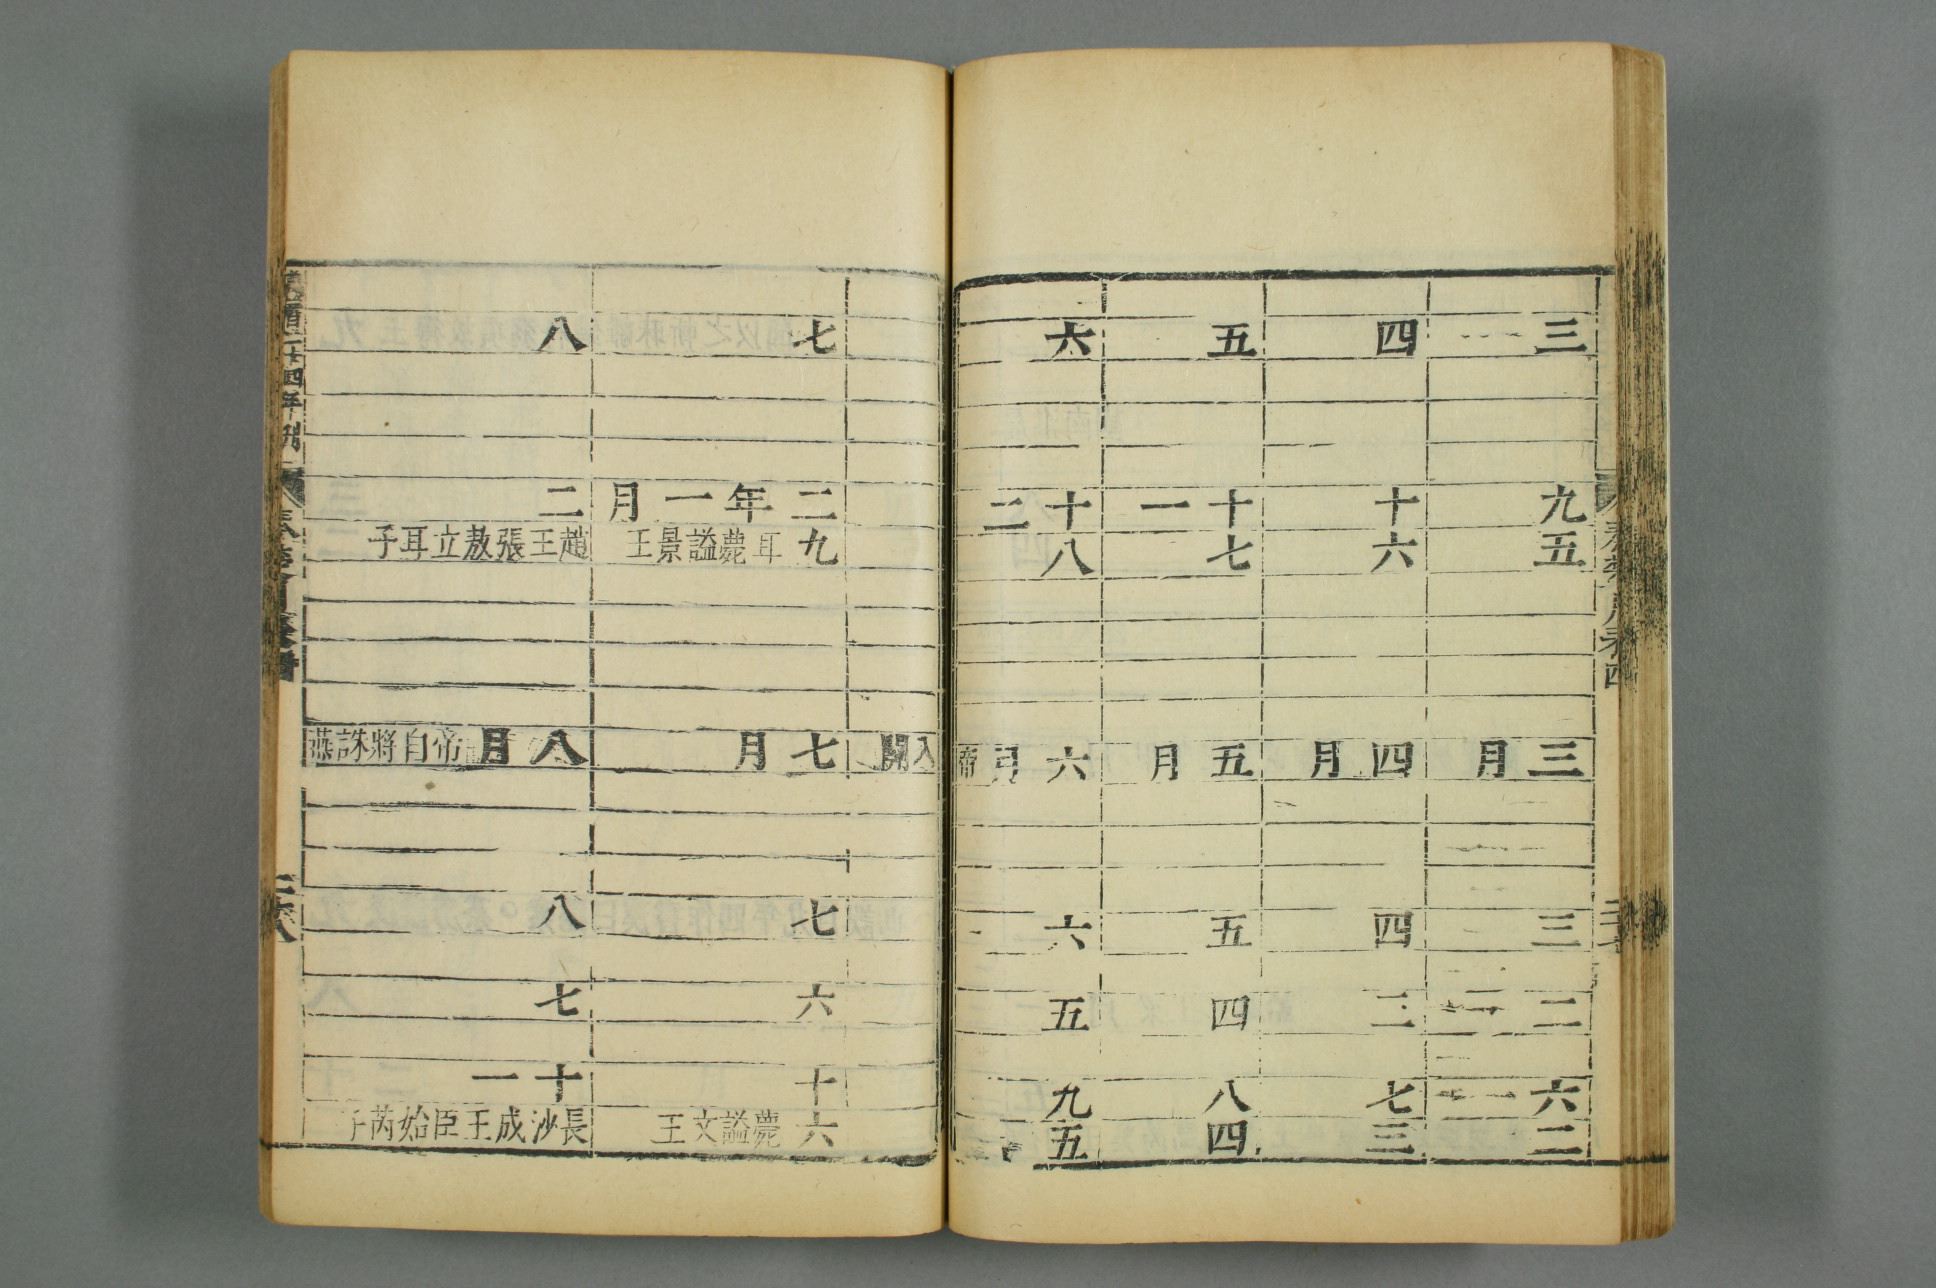 三
九
五
三月
三
二
六
二
四
十
六
四月
四
七
三
五
十一
七
五月
五
四
八
四
六
十二
八
六月 帝
六
五
九
五
入關
七
二年一月
九 耳薨謚景王
七月
七
六
十
六 薨謚文王
八
二
趙王張敖立耳子
八月 帝自將誅燕
八
七
十一
長沙成王臣始芮子
二十四年刊